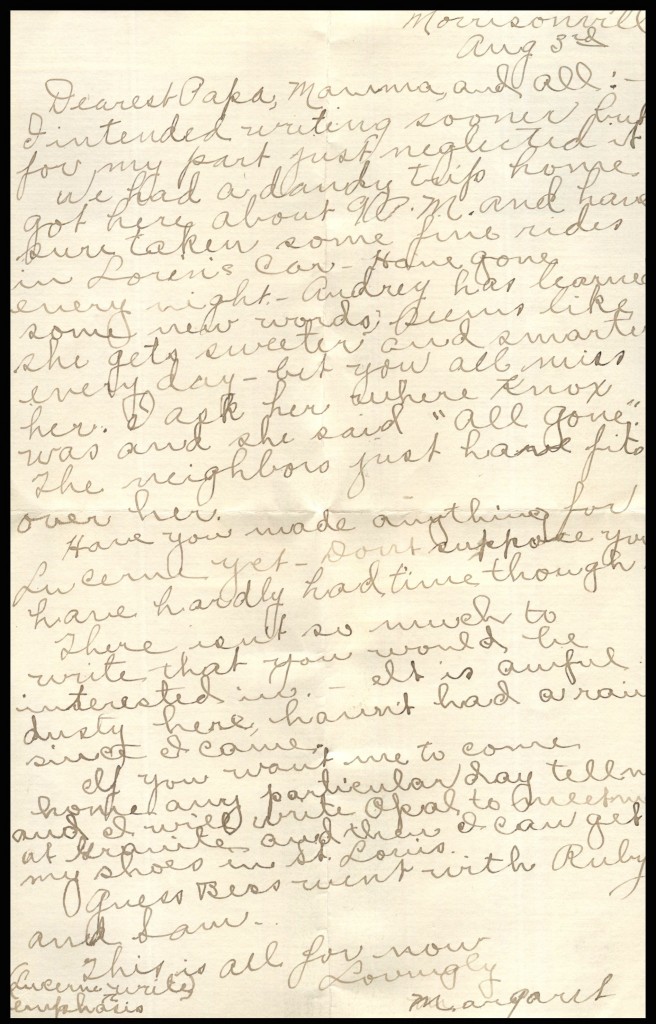 Morrisonvill
Aug 3rd
Dearest Papa, Mamma, and all:-
I intended writing sooner but
for my part just neglected it
We had a dandy trip home
got here about 9 P.M. and have
sure taken some fine rides
in Loren's Car - Have gone
every night - Audrey has learned
some new words, seems like
she gets sweeter and smarter
every day - bet you all miss
her. I ask her where Knox
was and she said "all gone".
The neighbors just have fits
over her.
Have you made anything for
Lucerne yet - Don't suppose you
have hardly had time though
There isn't so much to
write that you would be
interested in. - It is awful
dusty here, havn't had a rain
since I came.
If you want me to come
home any particular day tell m
and I will write Opal to meet m
at Granite and then I can get
my shoes in St. Louis.
Guess Bess went with Ruby
and Sam -
This is all for now
Lovingly
Margaret
(Lucerne write)
emphasis